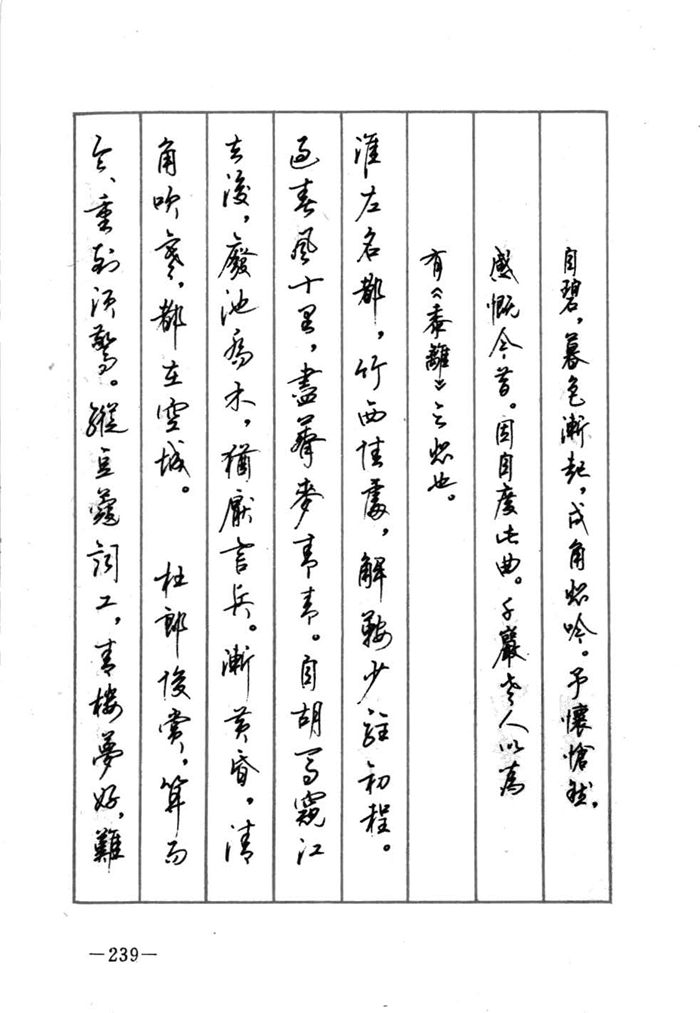 自碧，暮色漸起，戍角悲吟。予懷愴然，
感慨今昔。因自度此曲。千巖老人以爲
有《黍離》之悲也。
淮左名都，竹西佳處，解鞍少駐初程。
過春風十里，盡薺麥青青。自胡馬窺江
去後，廢池喬木，猶厭言兵。漸黄昏，清
角吹寒，都在空城。　杜郎俊賞，算而
今、重到須驚。縱豆蔻詞工，青樓夢好，難
—239—